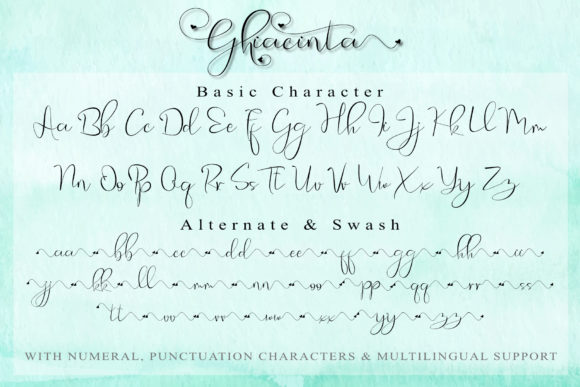 Ghiacinta
Basic Character
Aa Bb Cc Dd Ee Ff Gg Hh Ii Jj Kk Ll Mm
Nn Oo Pp Qq Rr Ss Tt Uu Vv Ww Xx Yy Zz
Alternate & Swash
aa bb cc dd ee ff gg hh ii
jj kk ll mm nn oo pp qq rr ss
tt uu vv ww xx yy zz
WITH NUMERAL, PUNCTUATION CHARACTERS & MULTILINGUAL SUPPORT